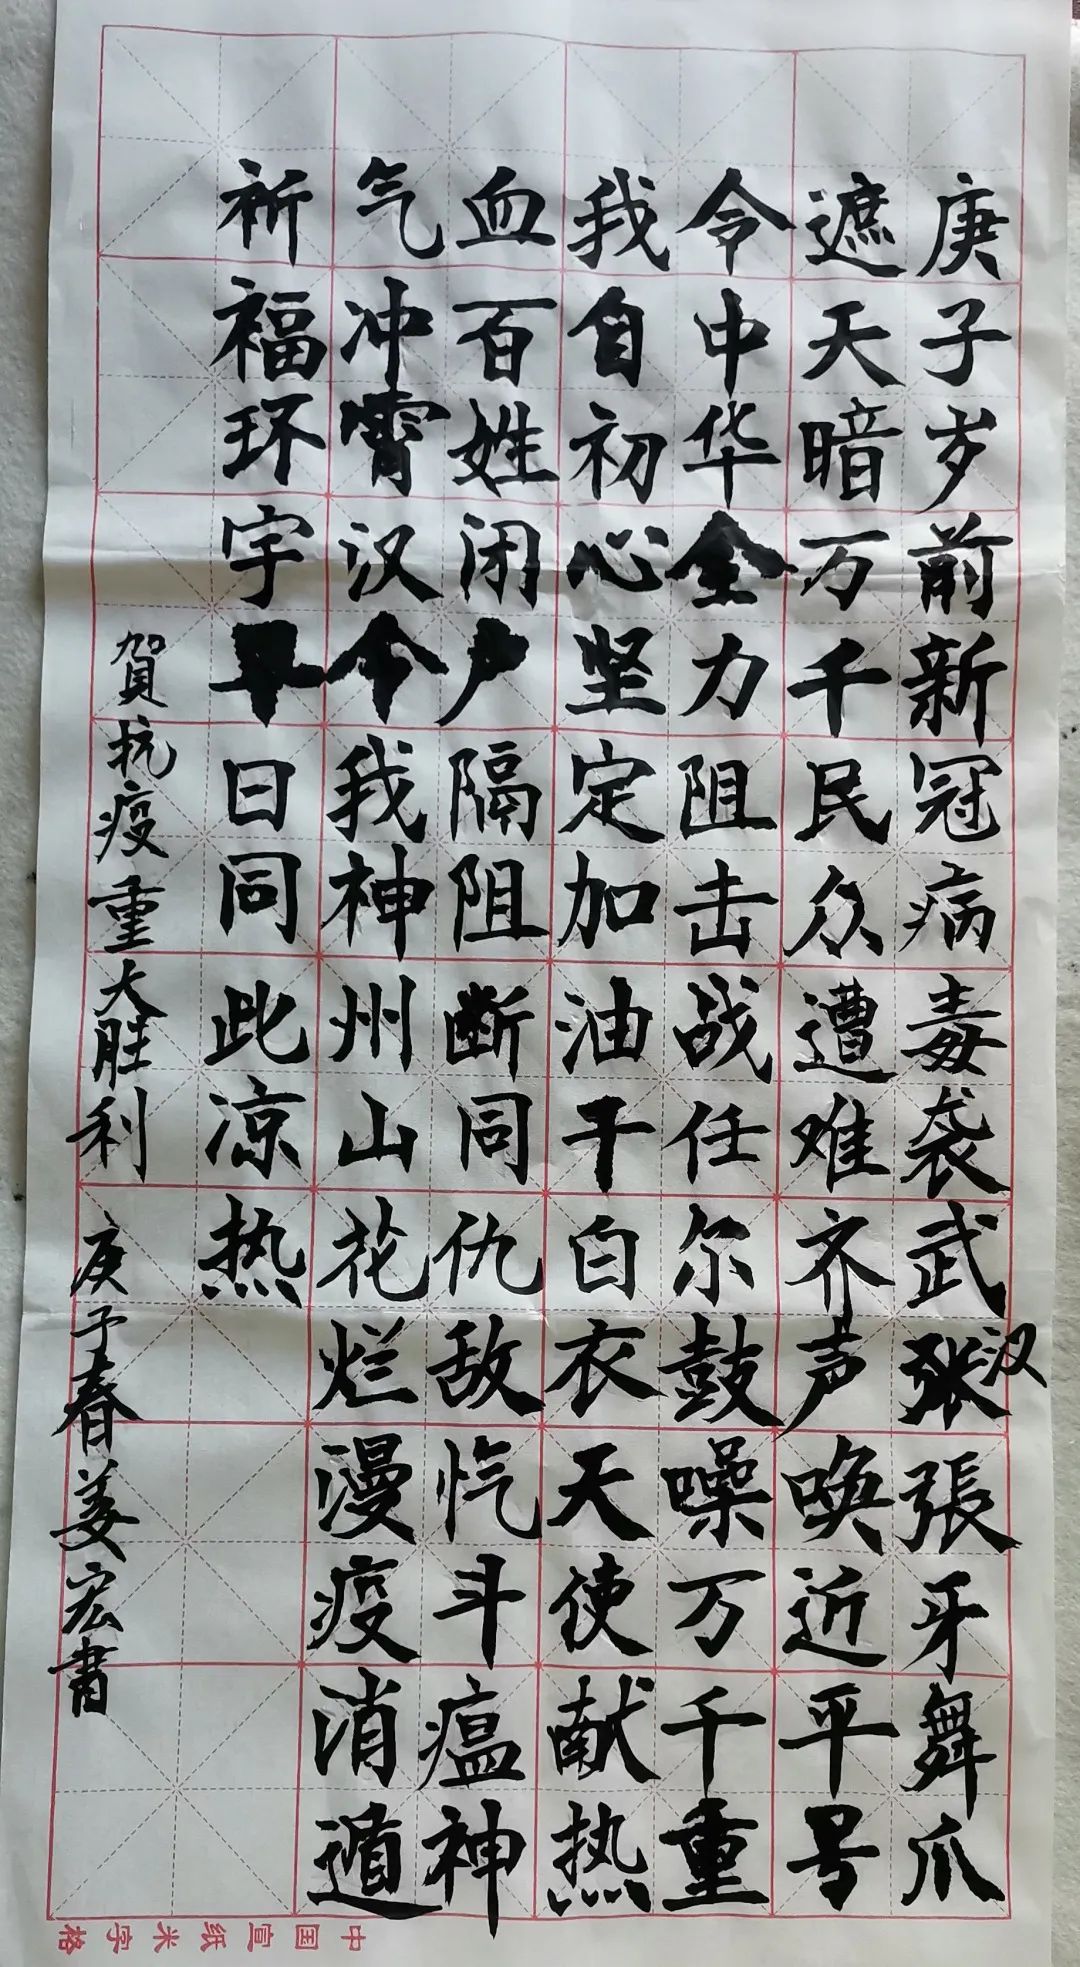 庚子岁前新冠病毒袭武张張牙舞爪
汉
遮天暗万千民众遭难齐声唤近平号
令中华全力阻击战任尔鼓噪万千重
我自初心坚定加油干白衣天使献热
血百姓闭户隔阻断同仇敌忾斗瘟神
气冲霄汉今我神州山花烂漫疫消遁
祈福环宇早日同此凉热
賀抗疫重大胜利 庚子春姜宏書
中国宣纸米字格